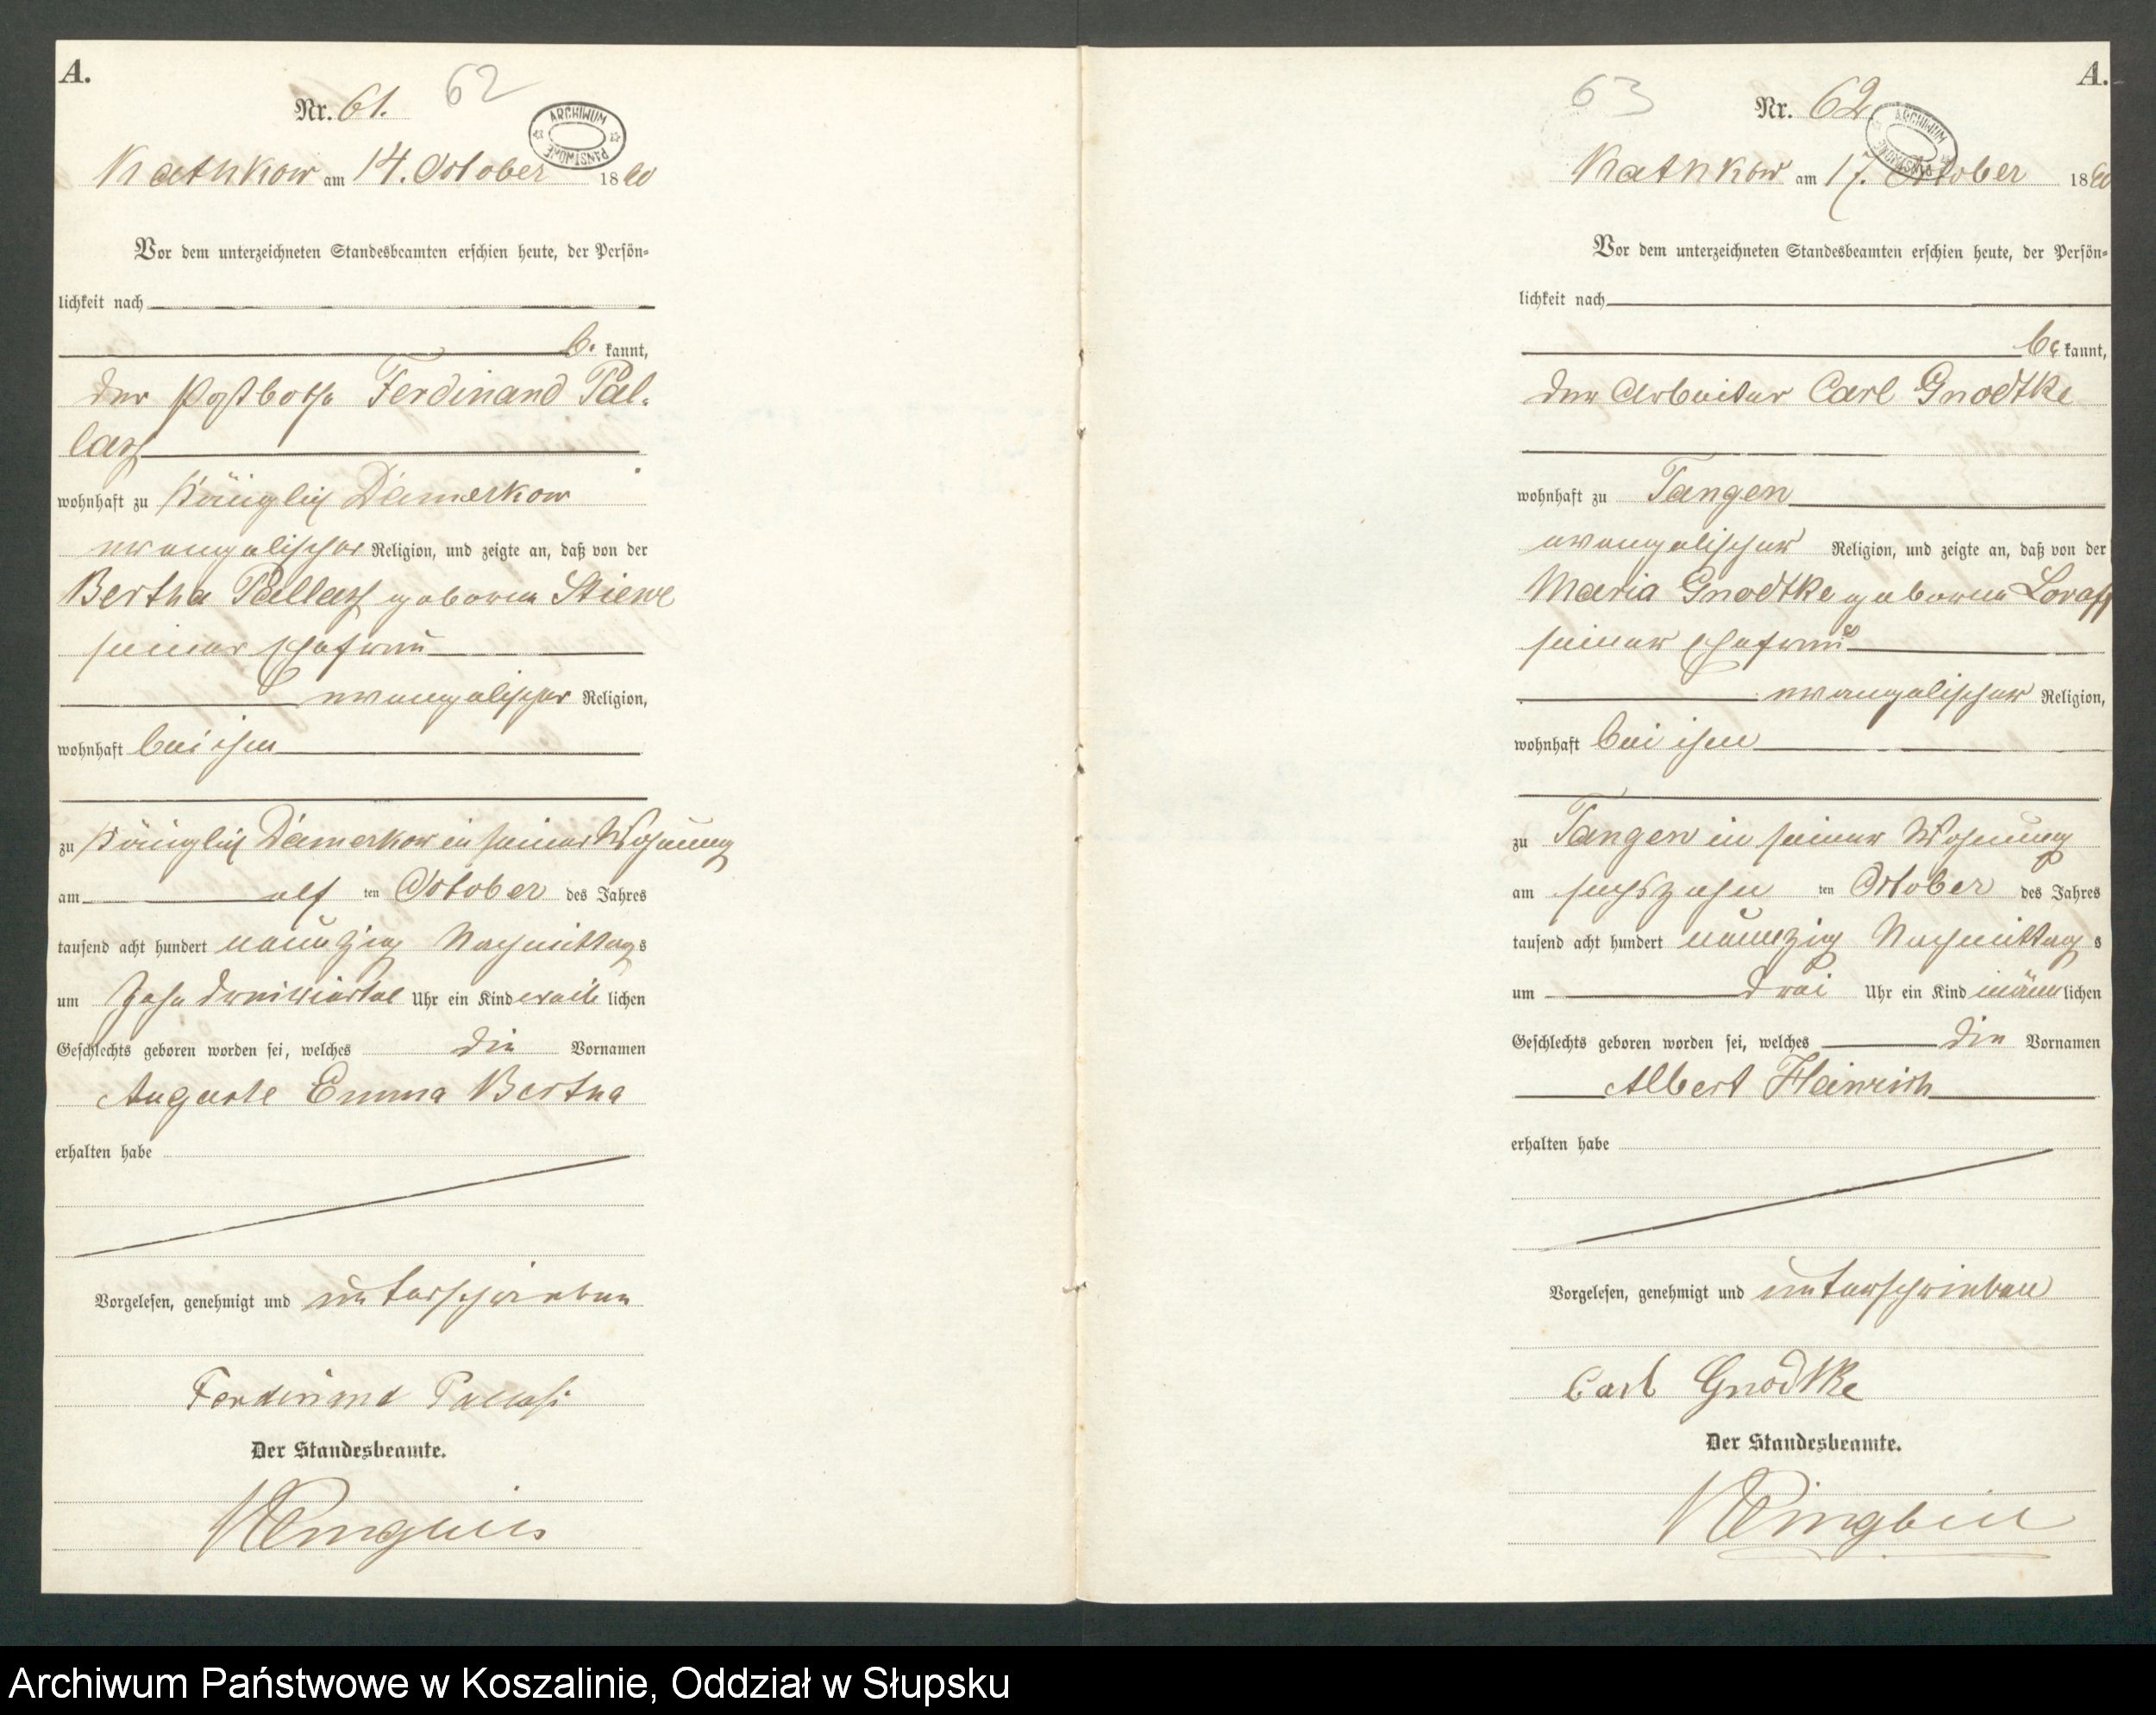 A.
Nr. 61.
62
ARCHIWUM PAŃSTWOWE
Kathkow am 14. October 1890
Vor dem unterzeichneten Standesbeamten erschien heute, der Persön-
lichkeit nach
be kannt,
der Postbote Ferdinand Pal-
lasz
wohnhaft zu Königlich Damerkow
evangelischer Religion, und zeigte an, daß von der
Bertha Pallasz geborene Stiewe
seiner Ehefrau
evangelischer Religion,
wohnhaft bei ihm
zu Königlich Damerkow in seiner Wohnung
am elf ten October des Jahres
tausend acht hundert neunzig Nachmittags
um zehn dreiviertel Uhr ein Kind weib lichen
Geschlechts geboren worden sei, welches die Vornamen
Auguste Emma Bertha
erhalten habe
Vorgelesen, genehmigt und unterschrieben
Ferdinand
Der Standesbeamte.
A.
63
Nr. 62
ARCHIWUM PAŃSTWOWE
Kathkow am 17. October 1890
Vor dem unterzeichneten Standesbeamten erschien heute, der Persön-
lichkeit nach
be kannt,
der Arbeiter Carl Gnodtke
wohnhaft zu Tangen
evangelischer Religion, und zeigte an, daß von der
Maria Gnodtke geborene
seiner Ehefrau
evangelischer Religion,
wohnhaft bei ihm
zu Tangen in seiner Wohnung
am sechszehn ten October des Jahres
tausend acht hundert neunzig Nachmittags
um drei Uhr ein Kind männ lichen
Geschlechts geboren worden sei, welches die Vornamen
Albert Heinrich
erhalten habe
Vorgelesen, genehmigt und unterschrieben
Carl Gnodtke
Der Standesbeamte.
Archiwum Państwowe w Koszalinie, Oddział w Słupsku